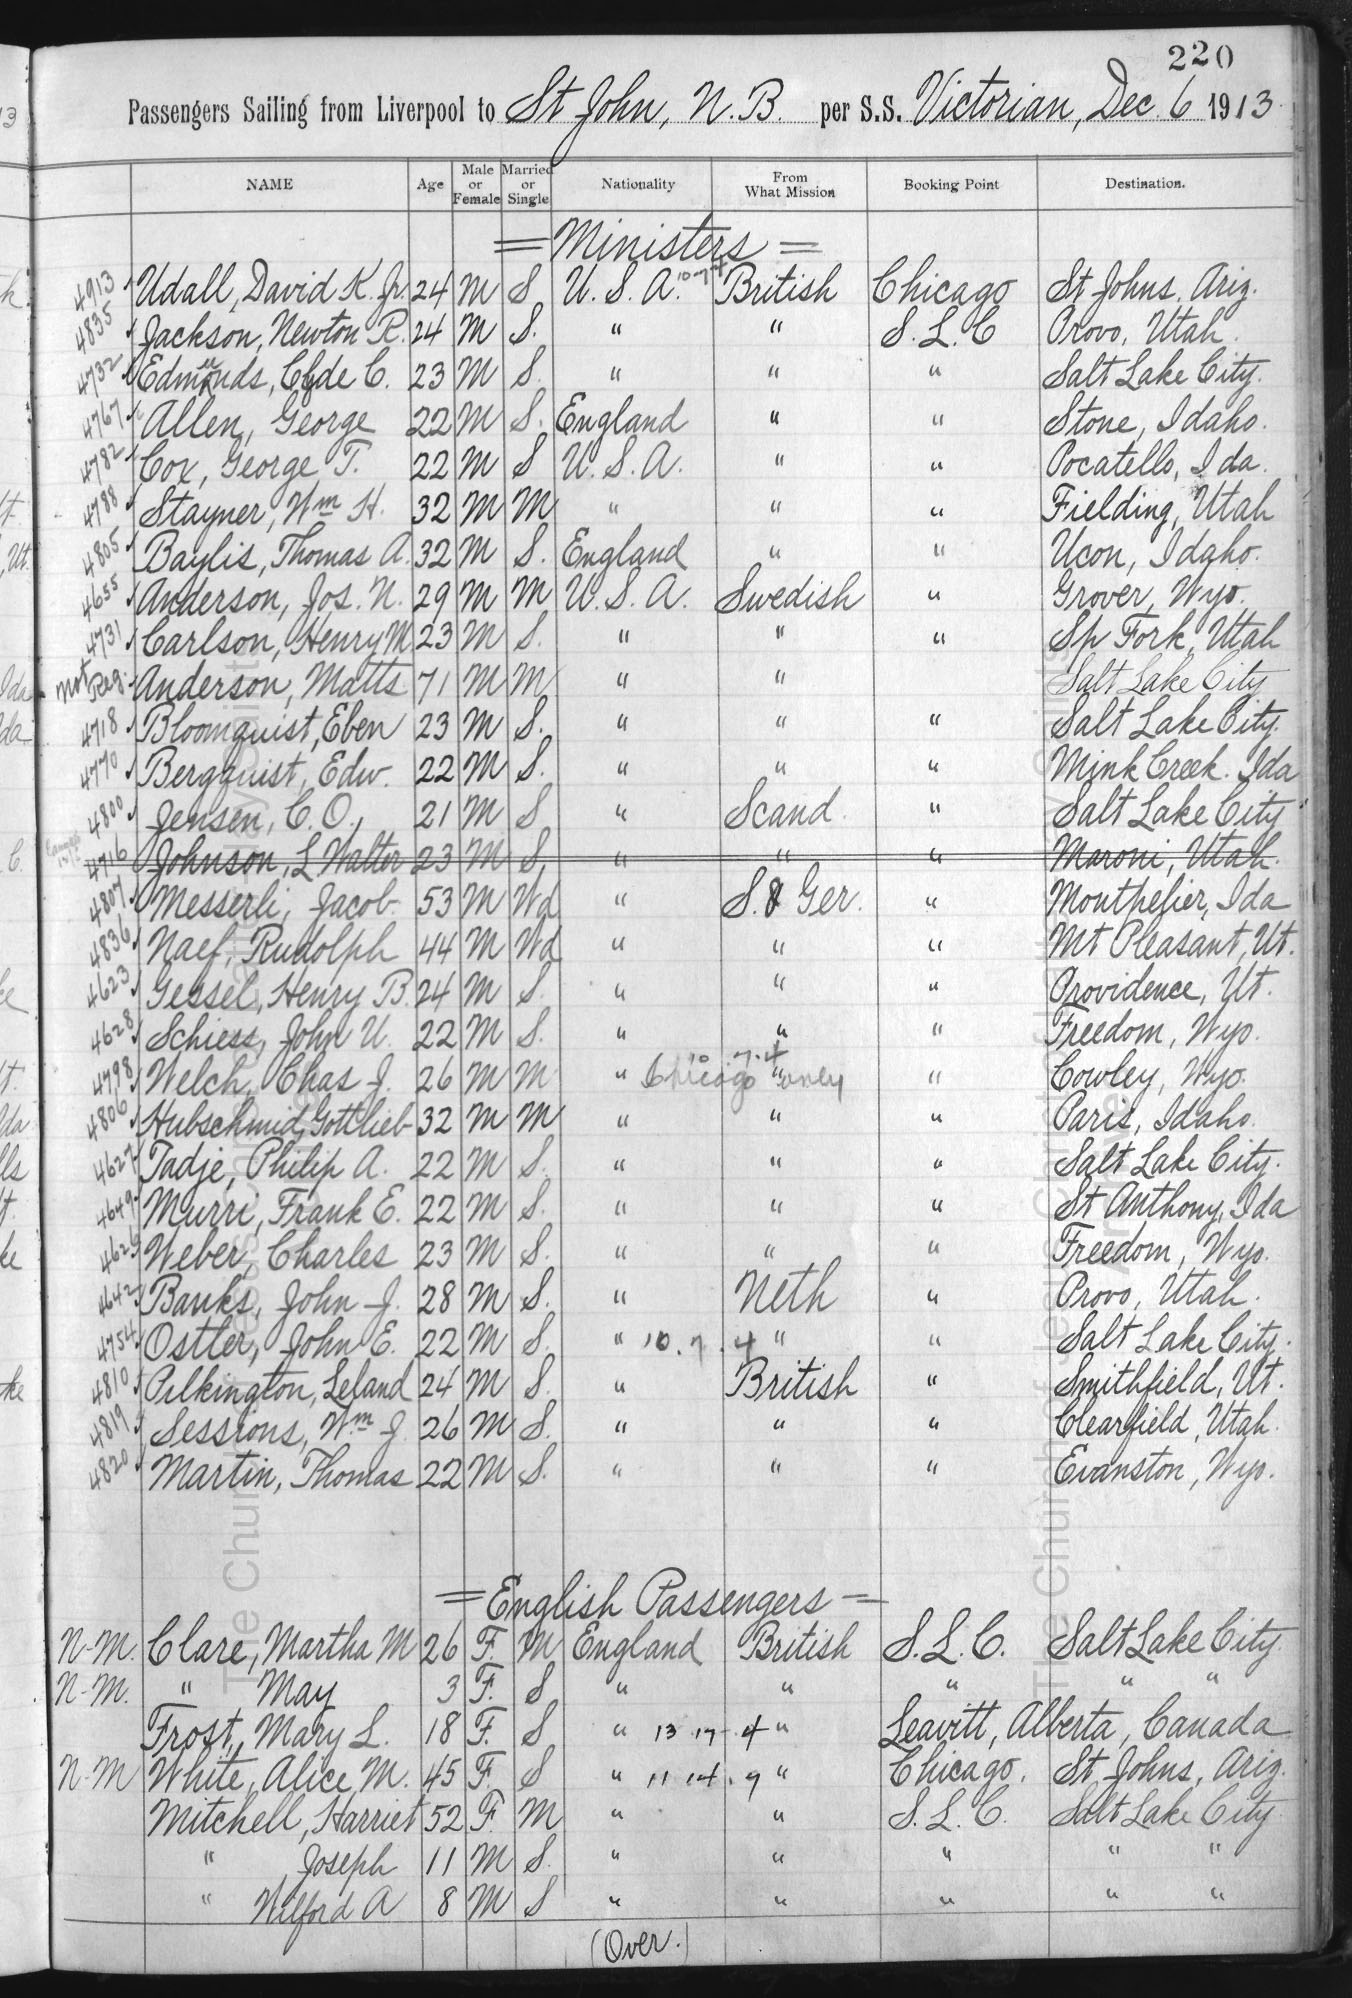 220
Passengers Sailing from Liverpool to St John, N.B. per S.S. Victorian, Dec. 6 1913
NAME Age Male or Female Married or Single Nationality From What Mission Booking Point Destination.
= Ministers =
4913 Udall, David K. Jr. 24 M S U.S.A. 10-7-4 British Chicago St Johns, Ariz.
4835 Jackson, Newton R. 24 M S. " " S.L.C Provo, Utah.
4732 Edmunds, Clyde C. 23 M S. " " " Salt Lake City.
4767 Allen, George 22 M S. England " " Stone, Idaho.
4782 Cox, George T. 22 M S U.S.A. " " Pocatello, Ida.
4788 Stayner, Wm H. 32 M M " " " Fielding, Utah
4805 Baylis, Thomas A. 32 M S. England " " Ucon, Idaho.
4655 Anderson, Jos. N. 29 M M U.S.A. Swedish " Grover, Wyo.
4731 Carlson, Henry M 23 M S. " " " Sp Fork, Utah
Not Reg. Anderson, Matts 71 M M " " Salt Lake City
4718 Bloomquist, Eben 23 M S. " " " Salt Lake City.
4770 Bergquist, Edw. 22 M S. " " " Mink Creek. Ida
4800 Jensen, C.O., 21 M S " Scand. " Salt Lake City
4716 Johnson, L Walter 23 M S. " " " Maroni, Utah.
4807 Messerli, Jacob 53 M Wd " S. & Ger. " Monthelier, Ida
4836 Naef, Rudolph 44 M Wd " " " Mt Pleasant, Ut.
4623 Gessel, Henry B. 24 M S. " " " Providence, Ut.
4628 Schiess, John U. 22 M S. " " " Freedom, Wyo.
4798 Welch, Chas J. 26 M M " 10.7.4 Chicago only " " Cowley, Wyo.
4806 Hubschmid, Gottlieb 32 M M " " " Paris, Idaho.
4627 Tadje, Philip A. 22 M S. " " " Salt Lake City.
4649 Murri, Frank E. 22 M S. " " " St Anthony, Ida
4626 Weber, Charles 23 M S. " " " Freedom, Wyo.
4642 Banks, John J. 28 M S. " Neth " Provo, Utah.
4754 Ostler, John E. 22 M S. " 10.7.4 " " Salt Lake City.
4810 Pilkington, Leland 24 M S. " British " Smithfield, Ut.
4819 Sessions, Wm J 26 M S. " " " Clearfield, Utah.
4820 Martin, Thomas 22 M S. " " " Evanston, Wyo.
= English Passengers =
N-M. Clare, Martha M 26 F. M England British S.L.C. Salt Lake City.
N-M. " May 3 F. S " " " " "
Frost, Mary L. 18 F. S " 13 17-4 " Leavitt, Alberta, Canada
N-M White, Alice M. 45 F. S " 11 14.9 " Chicago. St Johns, Ariz.
Mitchell, Harriet 52 F. M " " S.L.C. Salt Lake City
" Joseph 11 M S. " " " " "
" Wilford A 8 M S " " " " "
(Over.)